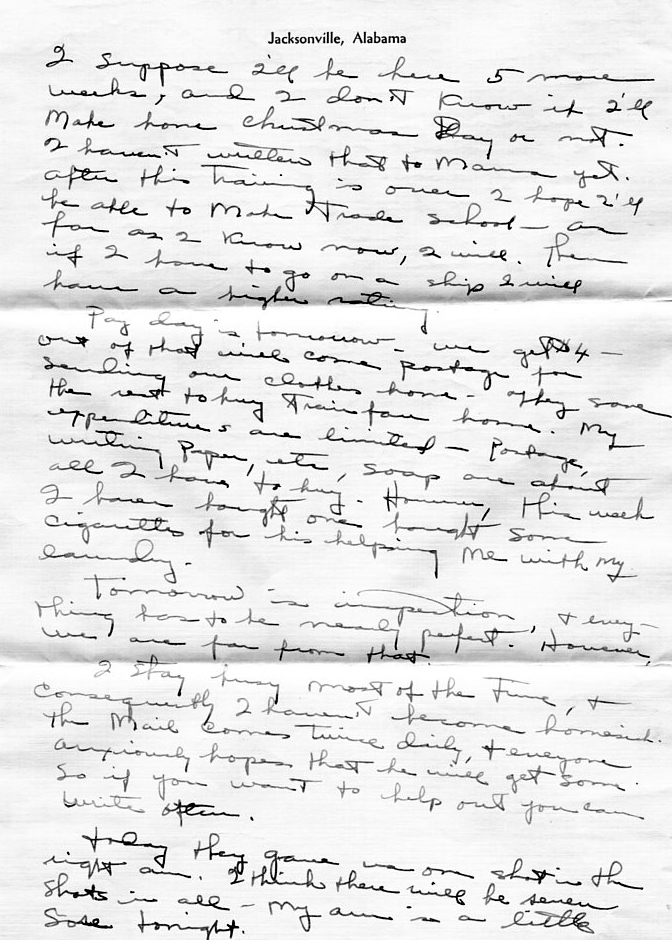 Jacksonville, Alabama
I suppose I'll be here 5 more
weeks, and I don't know if I'll
make home Christmas Day or not.
I haven't written that to Mama yet.
After this training is over I hope I'll
be able to make Trade School - as
far as I know now, I will. Then
if I have to go on a ship I will
have a higher rating.
Pay day is tomorrow - we get $4 -
out of that will come postage for
sending our clothes home - They save
the rest to buy train fare home. My
expenditures are limited - Postage,
writing paper, etc, soap are about
all I have to buy. However, this week
I haven bought one bought some
cigarettes for his helping me with my
laundry.
Tomorrow is inspection, & every-
thing has to be nearly perfect. However,
we are far from that.
I stay busy most of the time, &
consequently I haven't become homesick.
The mail comes twice daily, & everyone
anxiously hopes that he will get some.
So if you want to help out you can
write often.
today they gave us one shot in the
right arm. I think there will be seven
shots in all - my arm is a little
sore tonight.